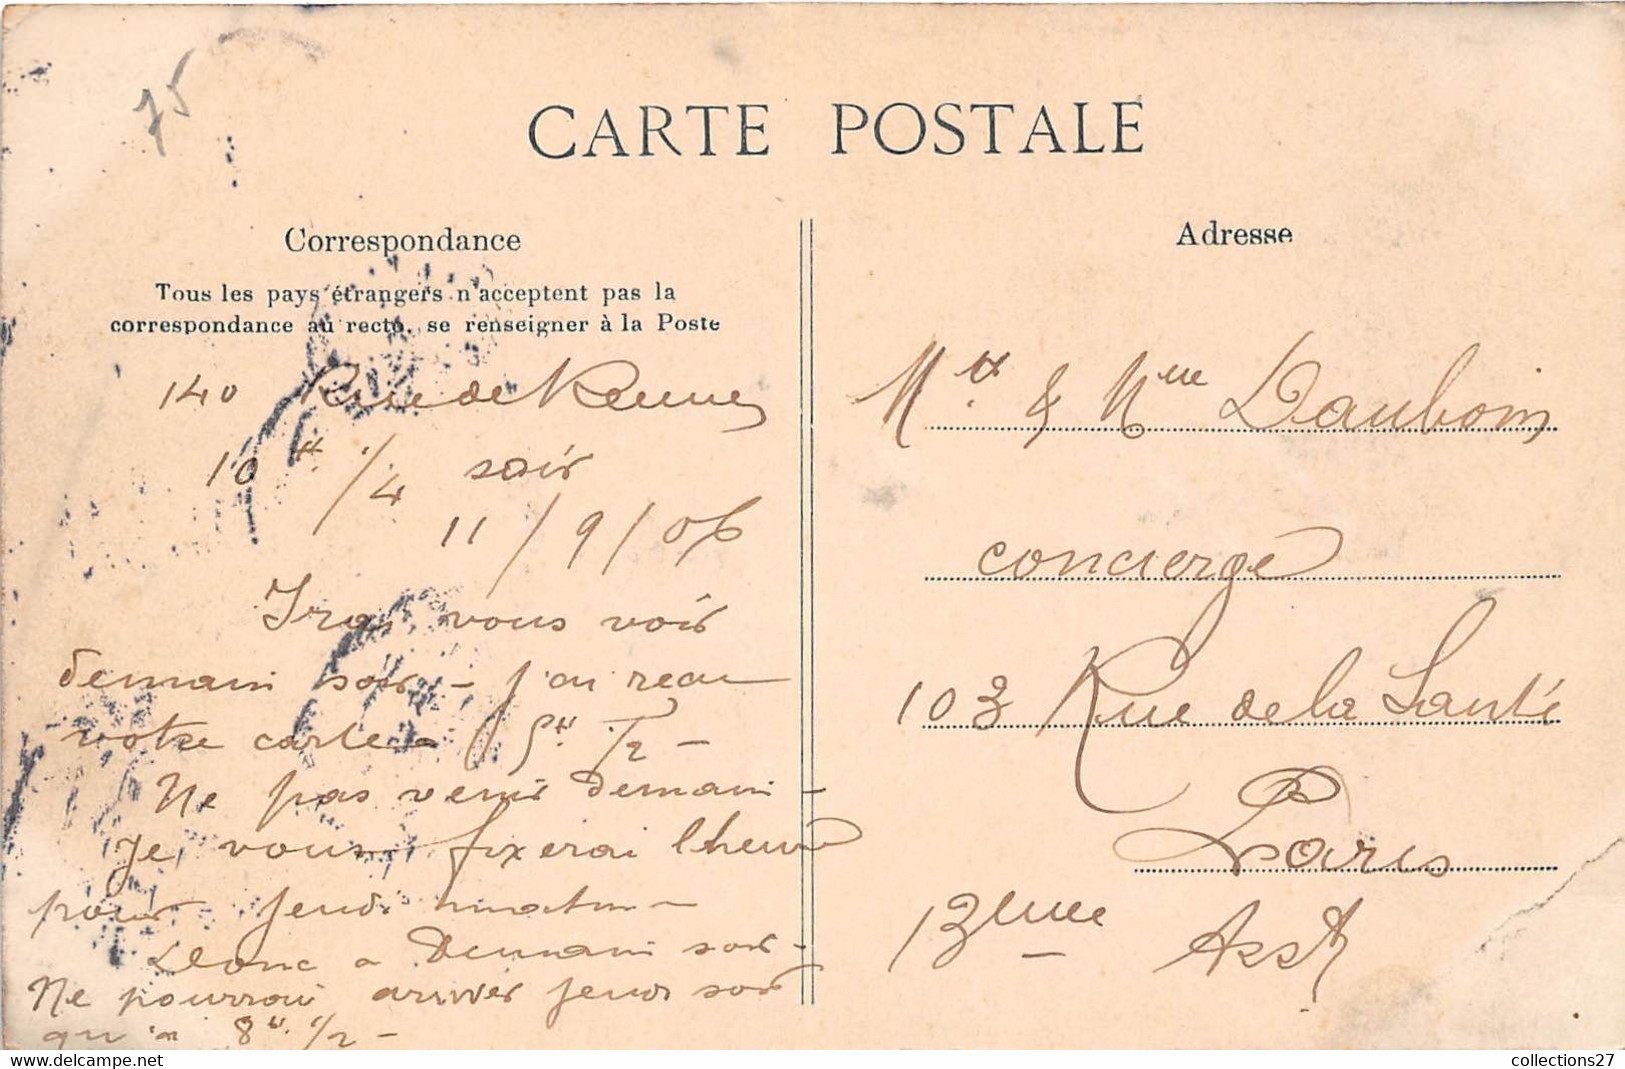 75
CARTE POSTALE
Correspondance
Tous les pays étrangers n'acceptent pas la
correspondance au recto, se renseigner à la Poste
140 Rue de Rennes
10 H 1/4 soir
11/9/06
Irai vous voir
demain soir - j'ai reçu
votre carte à 5H 1/2 -
Ne pas venir demain -
Je vous fixerai l'heure
pour jeudi matin -
Donc à demain soir -
Ne pourrai arriver jeudi soir
qu'à 8H. 1/2 -
Adresse
Mr & Mme Dauboin
concierge
103 Rue de la Santé
Paris
13eme Arrt
collections27